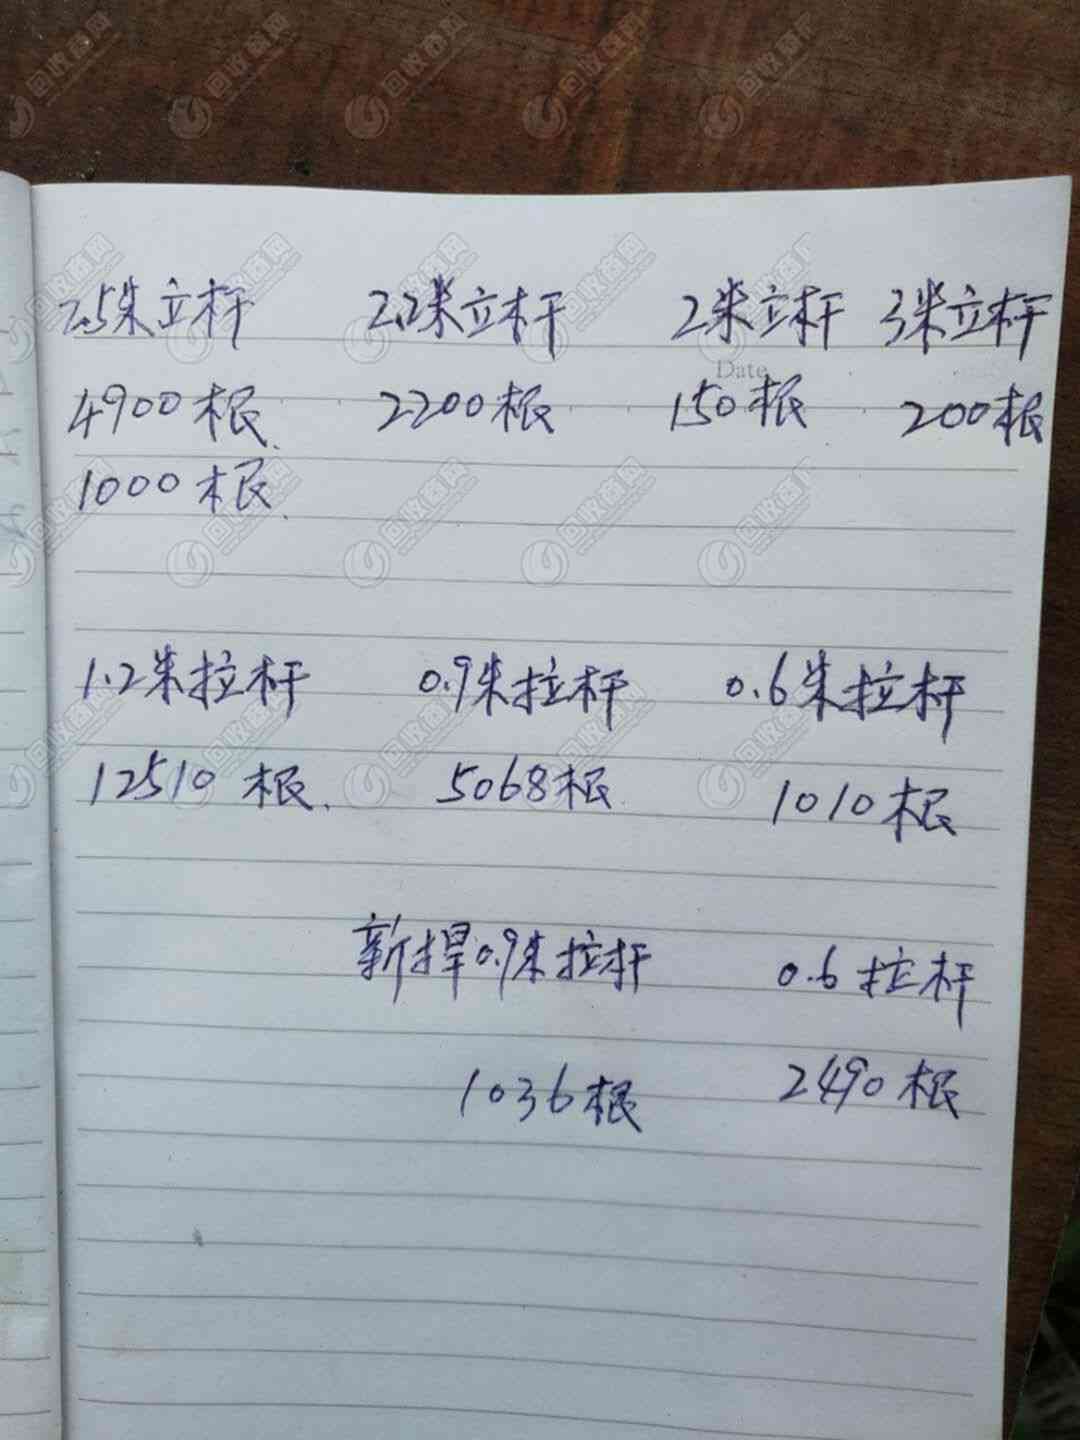 2.5米立杆 2.2米立杆 2米立杆 3米立杆
Date
4900根 2200根 150根 200根
1000根
1.2米拉杆 0.9米拉杆 0.6米拉杆
12510根 5068根 1010根
新捍0.9米拉杆 0.6拉杆
1036根 2490根
回收商网